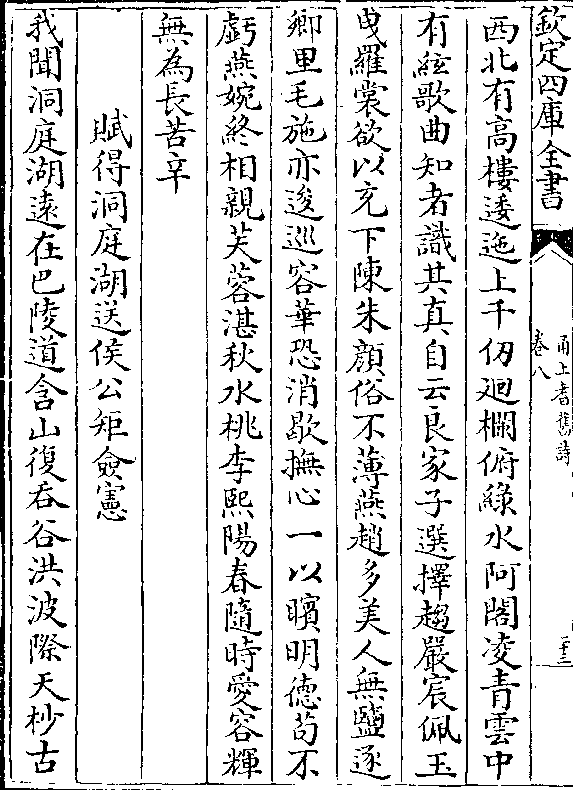 欽定四庫全書
甬上耆舊詩
卷八
二十三
西北有高樓逶迤上千仭迴欄俯綠水阿閣凌青雲中
有絃歌曲知者識其真自云良家子選擇趨嚴宸佩玉
曵羅裳欲以充下陳朱顔俗不薄燕趙多美人無鹽逐
鄉里毛施亦逡巡容華恐消歇撫心一以矉明德苟不
虧燕婉終相親芙蓉湛秋水桃李熙陽春隨時愛容輝
無為長苦辛
賦得洞庭湖送侯公矩僉憲
我聞洞庭湖遠在巴陵道含山復吞谷洪波際天杪古